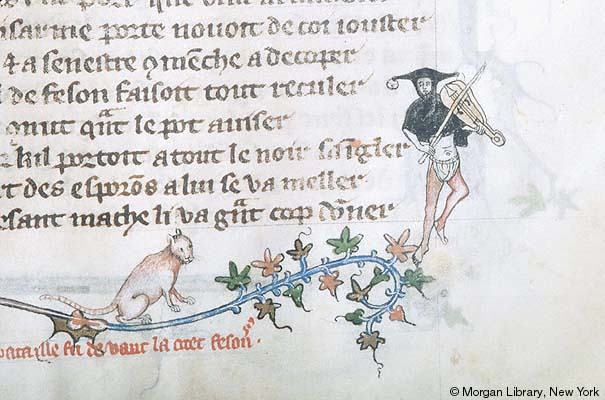 sarme porte nouoit de coi iouster
⁊ a senestre 9mēche a decoper
l de feson faisoit tout reculer
onut qᵃt le pot auiser
kil portoit a tout le noir
et des esporōs a lui se va meller
esant mache li va gᵃt cop dōner
bataille fu de vant la citet feson
© Morgan Library, New York